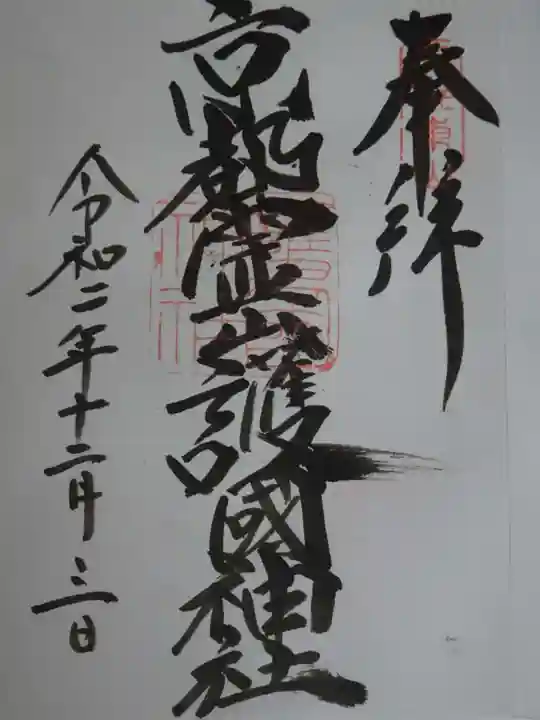 奉拝
京都霊山護國神社
令和二年十二月三日